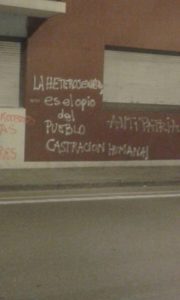 LA HETEROSEXUALIDAD
es el opio
del
PUEBLO
CASTRACION HUMANA
ANTI PATRIA
AS
RES